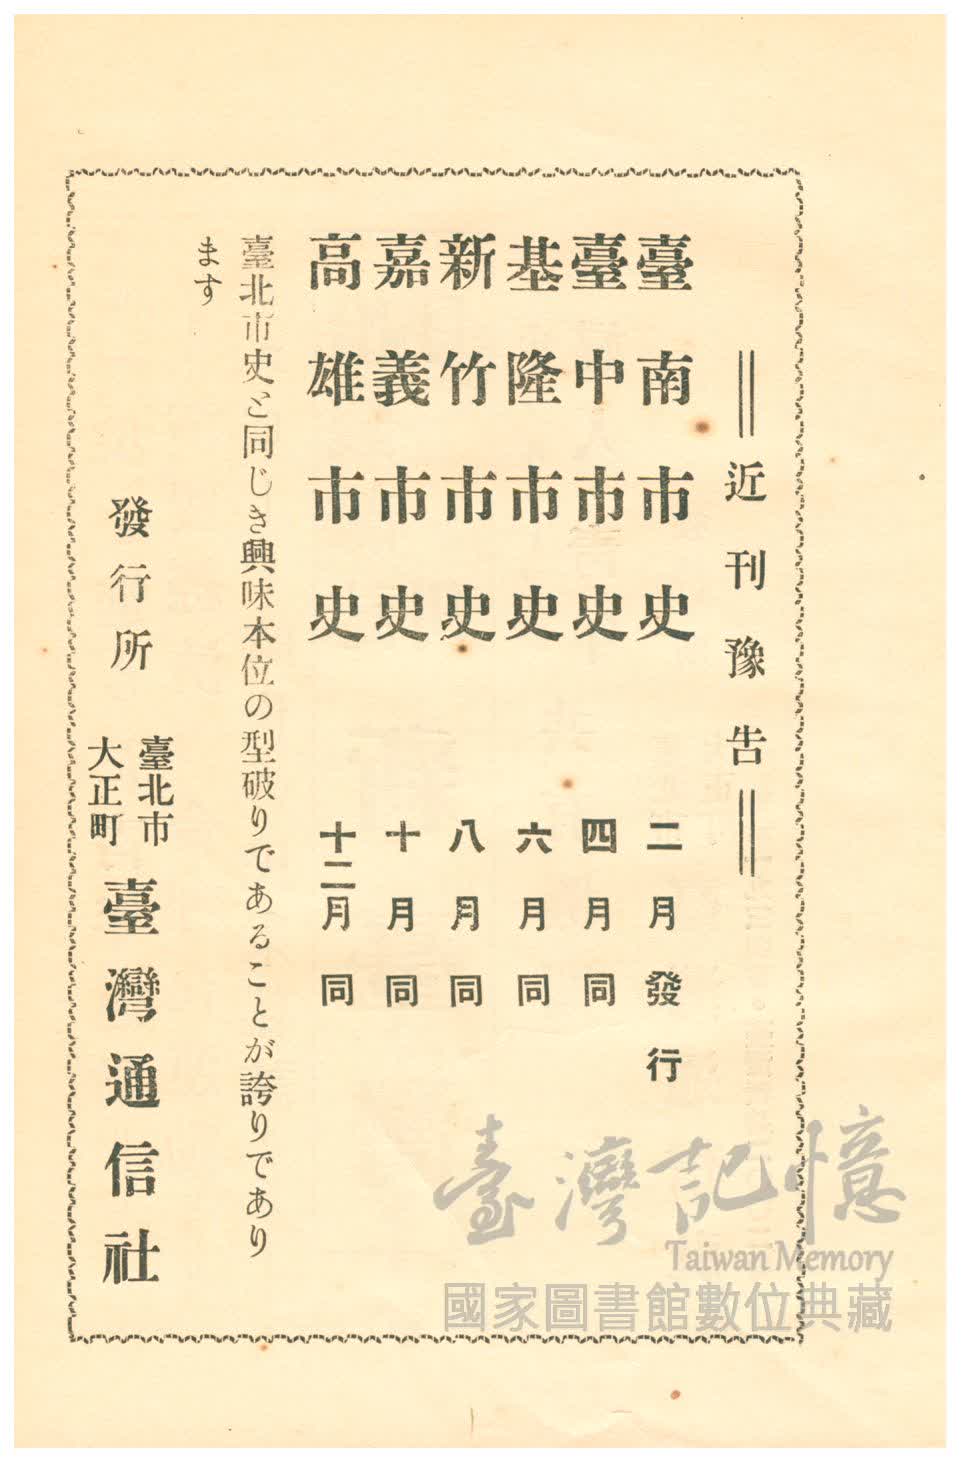 近刊豫告
臺南市史 二月發行
臺中市史 四月同
基隆市史 六月同
新竹市史 八月同
嘉義市史 十月同
高雄市史 十二月同
臺北市史と同じき興味本位の型破りであることが誇りであり
ます
發行所 臺北市
大正町
臺灣通信社
臺灣記憶
Taiwan Memory
國家圖書館數位典藏